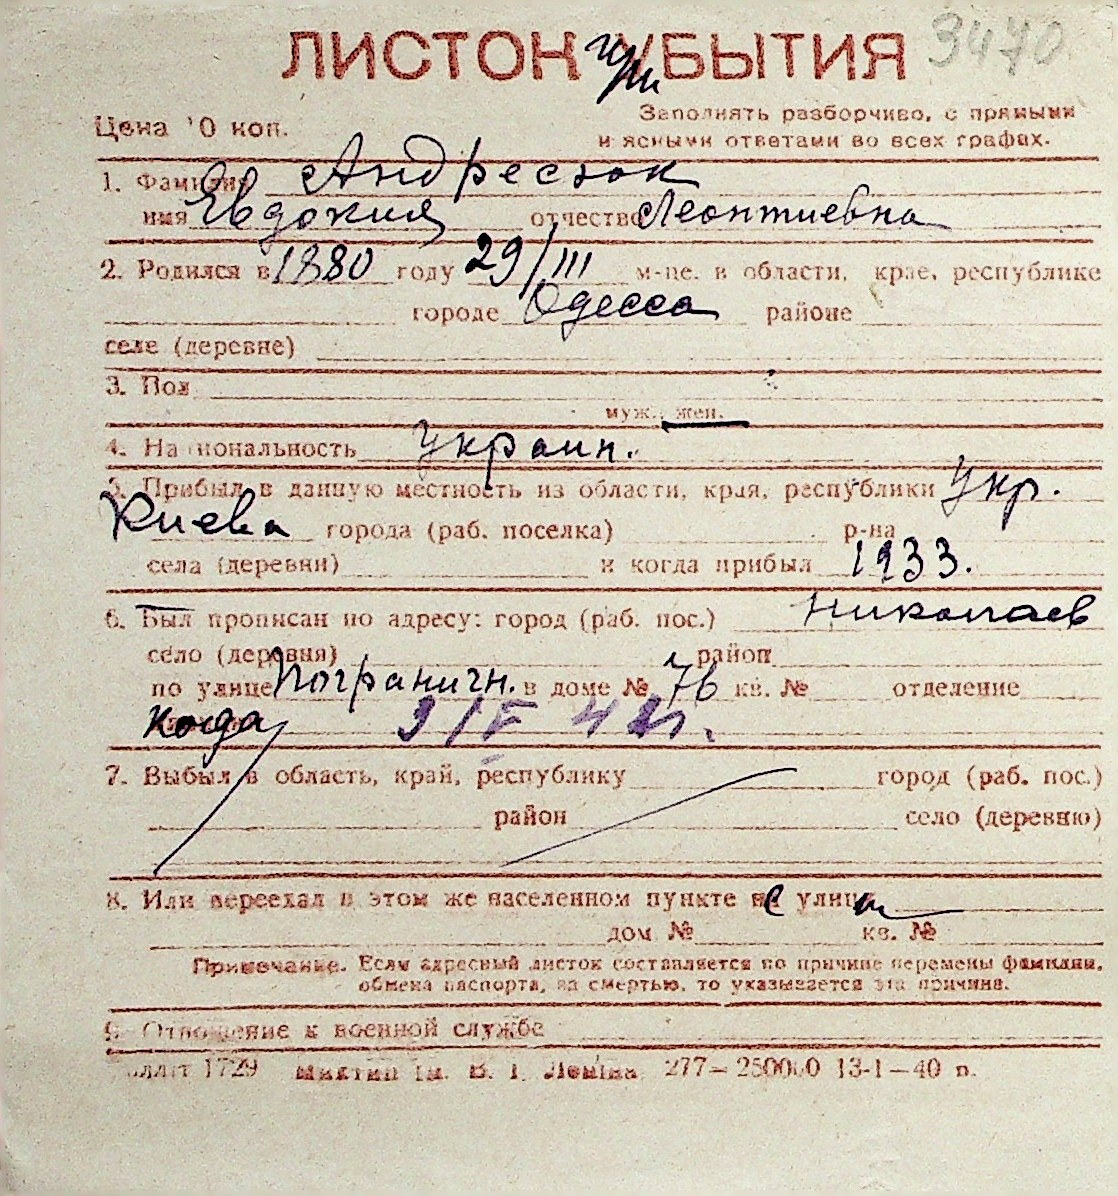 ЛИСТОК при УБЫТИЯ 3470
Цена 10 коп.
Заполнять разборчиво, с прямыми
и ясными ответами во всех графах.
1. Фамилия Андресюк
имя Евдокия отчество Леонтиевна
2. Родился в 1880 году 29/III м-це. в области, крае, республике
городе Одесса районе
селе (деревне)
3. Пол
муж., жен.
4. Национальность Украин.
5. Прибыл в данную местность из области, края, республики Укр.
Киева города (раб. поселка) р-на
села (деревни) и когда прибыл 1933.
6. Был прописан по адресу: город (раб. пос.) Николаев
село (деревня) район
по улице Пограничн. в доме № 76 кв. № отделение
когда
7. Выбыл в область, край, республику город (раб. пос.)
район село (деревню)
8. Или переехал в этом же населенном пункте с улицы
дом № кв. №
Примечание. Если адресный листок составляется по причине перемены фамилии,
обмена паспорта, за смертью, то указывается эта причина.
9. Отношение к военной службе
1729 ім. В. І. Леніна 277—250000 13-1—40 п.